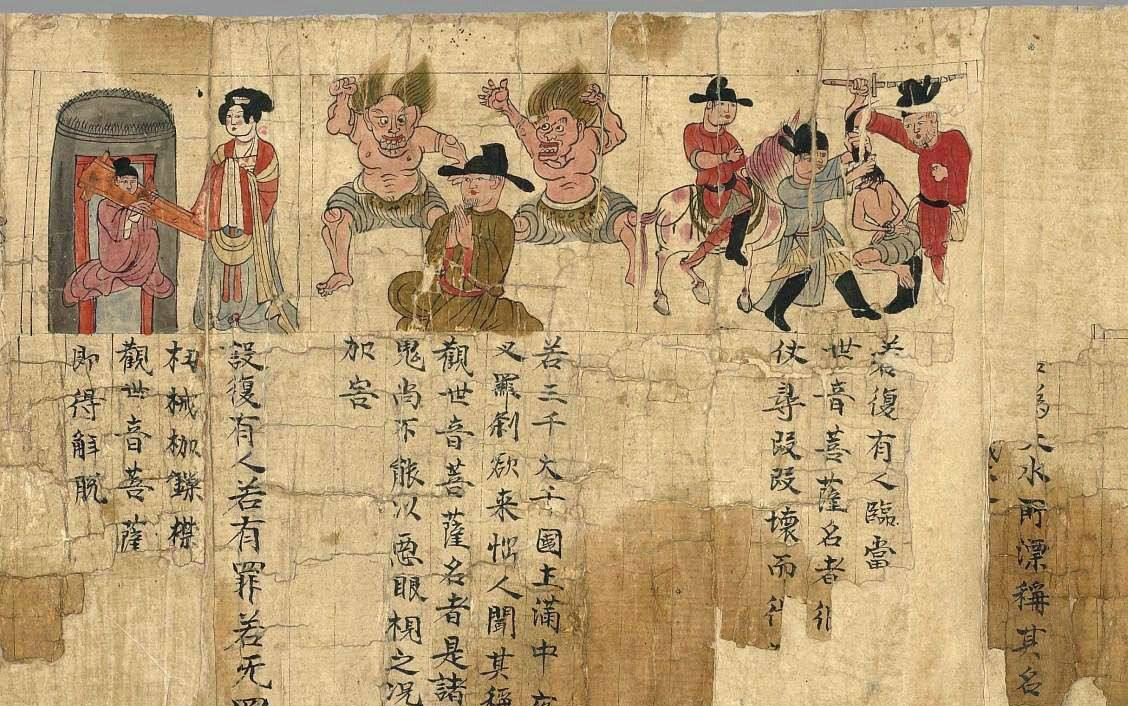 為大水所漂稱其名
若復有人臨當
世音菩薩名者
仗尋段段壞而
若三千大千國土滿中夜
叉羅剎欲来惱人聞其稱
觀世音菩薩名者是諸
鬼尚不能以惡眼視之況
加害
設復有人若有罪若无罪
杻械枷鏁
觀世音菩薩
即得解脫